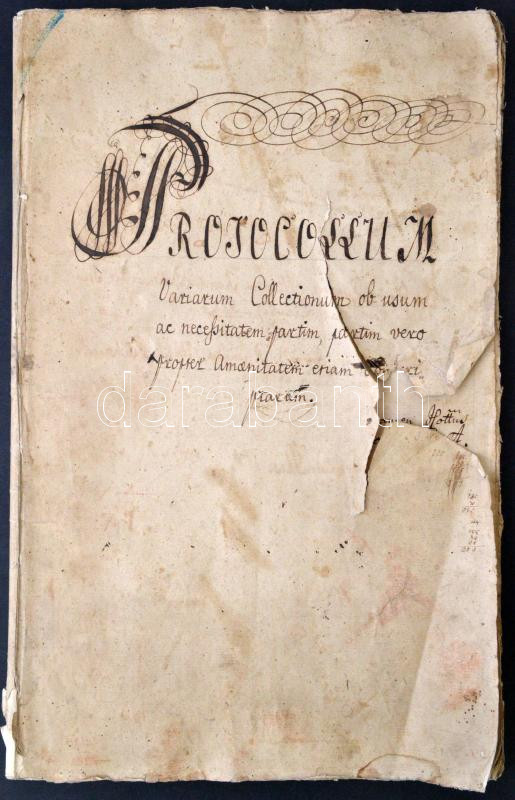 PROTOCOLLUM
Variarum Collectionum ob usum
ac necessitatem partim, partim vero
propter Amœnitatem etiam
ptarum.
darabanth